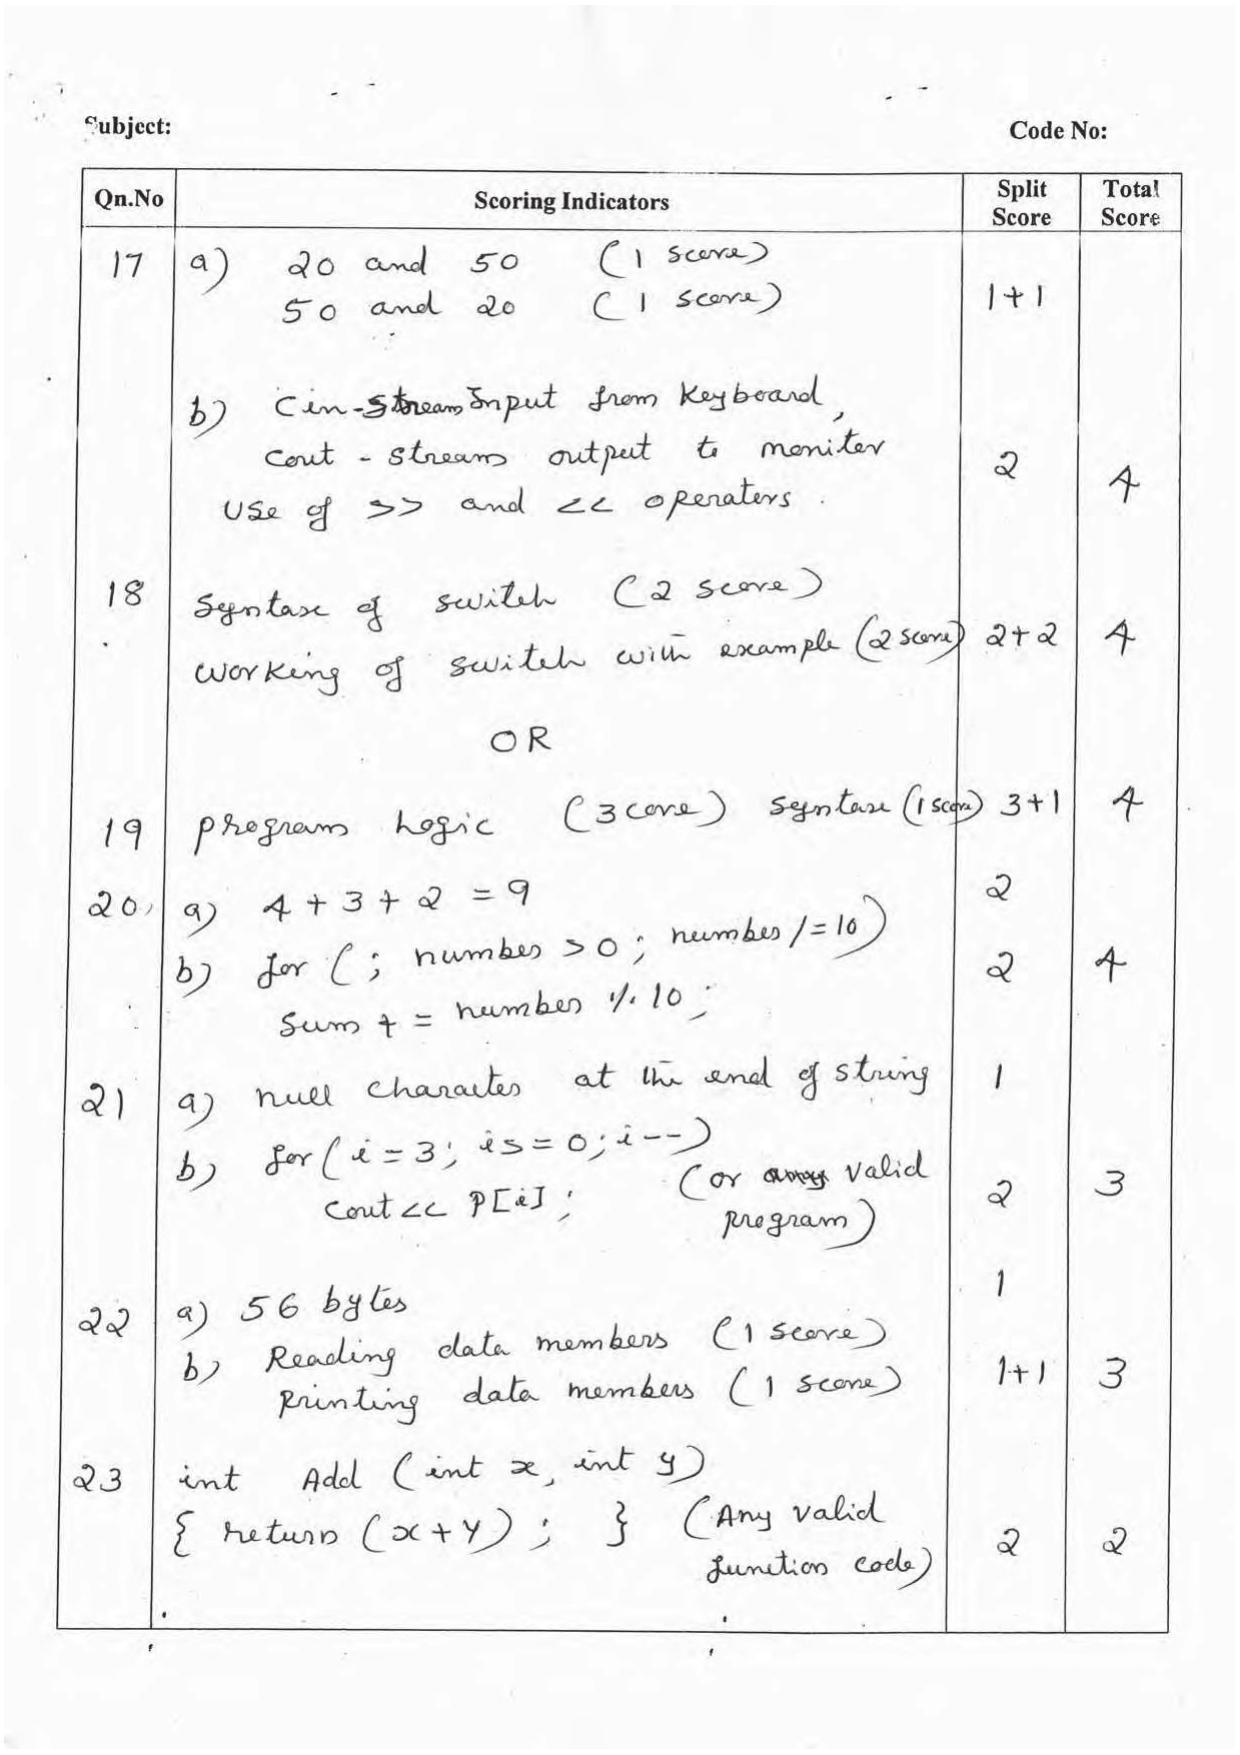 Subject:
Code No:
Qn.No Scoring Indicators Split Score Total Score
17 a) 20 and 50 (1 score)
50 and 20 (1 score) 1+1
b) Cin-Stream Input from Keyboard,
Cout - stream output to moniter
Use of >> and << operaters. 2 4
18 Syntax of switch (2 score)
Working of switch with example (2 score) 2+2 4
OR
19 program Logic (3 core) syntax (1 score) 3+1 4
20, a) 4 + 3 + 2 = 9 2
b) for ( ; number > 0 ; number /= 10)
Sum + = number % 10 ; 2 4
21 a) null character at the end of string 1
b) for ( i = 3; i >= 0; i--)
cout << P[i] ; (or any valid
program) 2 3
22 a) 56 bytes 1
b) Reading data members (1 score)
Printing data members (1 score) 1+1 3
23 int Add (int x, int y)
{ return (x+y) ; } (Any valid
function code) 2 2